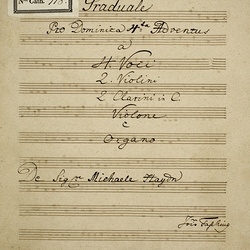 Graduale
Pro Dominica 4ta Adventus
a
4 Voci
2 Violini
2 Clarini in C.
Violone
e
Organo
Del Sigre Michaele Haydn